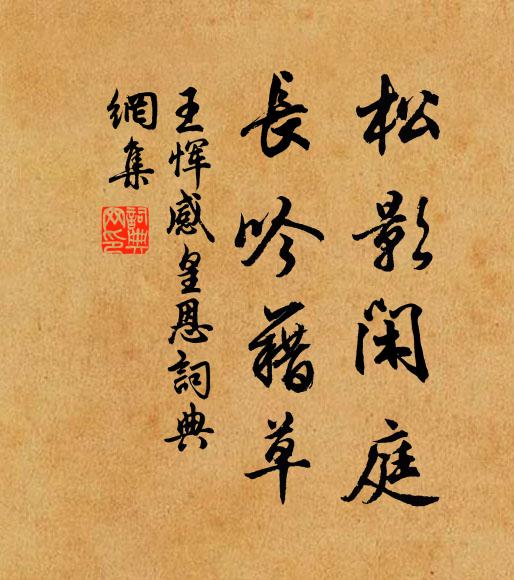 松影閑庭
長吟藉草
王惲感皇恩詞典
網集
詞典
网印